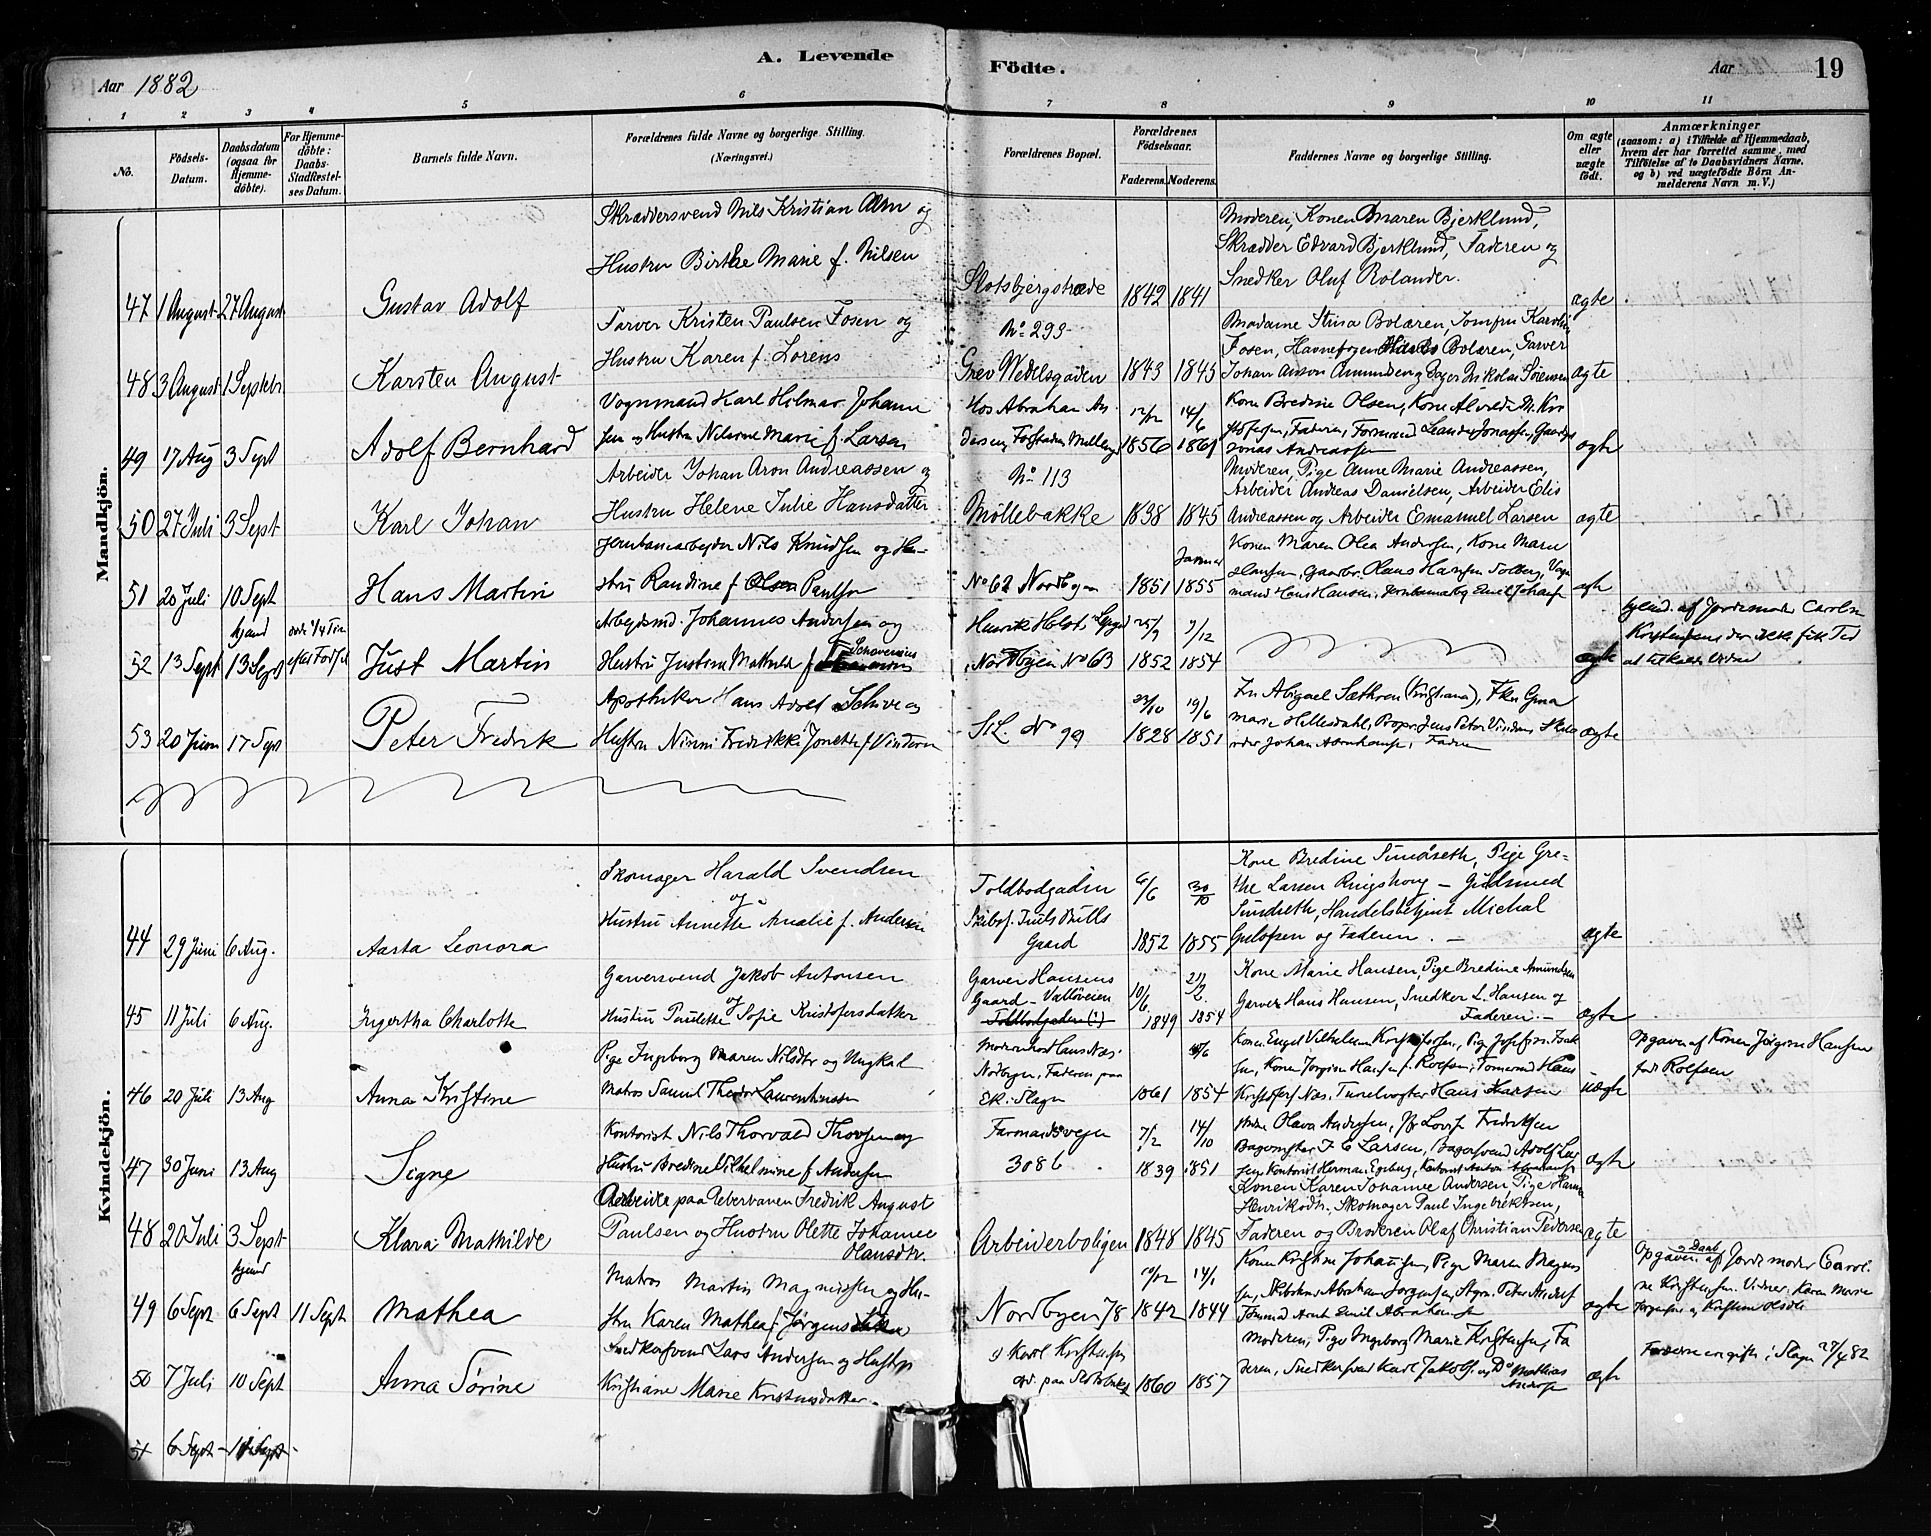 A. Levende Födte.
Aar 1882
Aar 19
1 2 3 4 5 6 7 8 9 10 11
No.
Födsels-Datum.
Daabsdatum (ogsaa for Hjemmedöbte).
For Hjemmedöbte: Daabs-Stadfestelses Datum.
Barnets fulde Navn.
Forældrenes fulde Navne og borgerlige Stilling. (Næringsvei.)
Forældrenes Bopæl.
Forældrenes Födselsaar.
Faderens. Moderens.
Faddernes Navne og borgerlige Stilling.
Om ægte eller uægte födt.
Anmærkninger
(saasom: a) i Tilfælde af Hjemmedaab, hvem der har forrettet samme, med Tilföielse af to Daabsvidners Navne, og b) ved uægtefödte Börn Anmelderens Navn m. V.)
Mandkjön.
Skræddersvend Nils Kristian Alm og
Hustru Birthe Marie f. Nilsen
47 1 August 27 August Gustav Adolf
Slotsbjergstræde No 293
1842 1841
Moderen, Konen Maren Bjerklund,
Skrædder Edvard Bjerklund, Faderen og
Snedker Oluf Rolander.
ægte
Farver Kristen Paulsen Fosen og
Hustru Karen f. Lorens
48 3 August 1 Septbr Karsten August
Grev Wedelsgaden 1843 1845
Madame Stina Bolæren, Jomfru Karoline
Fosen, Havnefogen Bolæren, Garver
Johan Anton Amundsen og Nikolai Sörensen
ægte
Vognmand Karl Hilmar Johann
sen og Hustru Marie f. Larsen
49 17 Aug 3 Sept Adolf Bernhard
Hos Abraham An
dersen,
12/12 14/6
1856 1861
Kone Bredine Olsen, Kone Alvilde M. Kri
stoffersen, Faderen, Formand Leander Jonassen,
Jonas Andreassen
ægte
Arbeider Johan Aron Andreassen og
Hustru Helene Julie Hansdatter
50 27 Juli 3 Sept Karl Johan
No 113
Möllebakke 1838 1845
Moderen, Pige Anne Marie Andreassen,
Arbeider Andreas Danielsen, Arbeider Elis
Andreassen og Arbeider Emanuel Larsen
ægte
Jernbanearbejder Nils Knudsen og Hu-
stru Randine f. Paulsen
51 20 Juli 10 Sept Hans Martin
No 62 Nordbyen 1851 Januar 1855
Konen Maren Olea Andersen, Kone Maren
Hansen, Gaardbr. Olaus Hansen Solberg, Vogn
mand Hans Hansen, Emil Johansen
ægte
Arbejdsmd. Johannes Andersen og
Hustru Justine Mathilde f.
52 13 Sept hjemd 13 Sept døde 1/4 Time efter Fødsel Just Martin
Henrik Holst's
Nordbyen No 63
25/9 9/12
1852 1854
ægte
hjemd. af Jordemoder Carolin
Kristensen der ikke fik Tid
at tilkalde Vidner
Apotheker Hans Adolf Schive og
Hustru Ninni Fredrikke f. Vindern
53 20 Juni 17 Sept Peter Fredrik
St. L. No 99
22/10 19/6
1828 1851
Fru Abigael Sæthren (Kristiania), Frkn Gina
Marie Hillesdahl, Propr. Jens Peter Vindern,
Johan Abrahamsen, Faderen
ægte
Kvindekjön.
Skomager Harald Svendsen
og
Hustru Annette Amalie f. Andersen
44 29 Juni 6 Aug. Aasta Leonora
Toldbodgaden
Skibsf. Juels Bulls
Gaard
6/6 30/10
1852 1855
Kone Bredine Sundseth, Pige Gre-
the Larsen Ringshoug – Guldsmed
Sundseth, Handelsbetjent Michal
Gulofsen og Faderen. –
ægte
Garversvend Jakob Antonsen
og
Hustru Paulette Sofie Kristofersdatter
45 11 Juli 6 Aug. Ingertha Charlotte
Garver Hansens
Gaard – Vallöveien
Toldbodgaden (?)
10/6 21/2
1849 1854
Kone Marie Hansen, Pige Bredine Amundsen
Garver Hans Hansen, Snedker L. Hansen og
Faderen. –
ægte
Pige Ingeborg Maren Nilsdtr og Ungkal
Matros Samuel Theodor Laurenthiussen
46 20 Juli 13 Aug Anna Kristine
Moderen hos Hans Næs.
Nordbyen, Faderen paa
Ek i Slagn
1861 1854
Konen Engel Vilhelmine Kristoffersen, Pige Josefine
sen, Konen Jörgine Hansen f. Rolfsen, Tømmermd Hans
Kristoffers Næs, Tunelvogter Hans Hansen
uægte
Opgaven af Konen Jörgine Hansen
född Rolfsen
Kontorist Nils Thorvald Thorsen og
Hustru Bredine Vilhelmine f. Andersen
47 30 Juni 13 Aug Signe
Farmandsvejen
308 b.
7/2 14/10
1839 1851
Olava Andersen, Lovise Fredriksen
Bagermester J. C. Larsen, Bagersvend Adolf Lar
sen, Kontorist Herman Egeberg, Kontorist Anton Abrahamsen
ægte
Arbeider paa Jebervanen Fredrik August
Paulsen og Hustru Olette Johanne
Hansdtr.
48 20 Juli 3 Sept Klara Mathilde
Arbeiderboligen 1848 1845
Konen Karen Johanne Andersen, Pige Hanna
Henriksdtr. Skomager Paul Ingebrektsen,
Faderen og Broderen Olaf Christian Pedersen
ægte
Matros Martin Magnussen og Hu-
stru Karen Mathea f. Jørgens
49 6 Sept hjemd 6 Sept 11 Sept Mathea
Nordbyen 78
10/12 14/1
1842 1844
Konen Kristine Johansen, Pige Maren Magnus
sen, Abraham Jørgensen, Styrm. Peter
Tømmermd Arnt Emil Abrahamsen
ægte
Opgaven og Daab af Jordemoder Caroli
ne Kristensen. Vidner: Karen Marie
Jørgensen og Kristine Olsdtr
Snedkersvend Lars Andersen og Hustru
Kristiane Marie Kristensdatter.
50 7 Juli 10 Sept Anna Sörine
Karl Kristensen
paa Slotsbakken
1860 1857
Moderen, Pige Ingeborg Marie Kristensen, Fa
deren, Snedkersvend Karl Jakobs. og Do Mathias
Anders.
ægte
Forældrene er gifte i Slagn 27/4 82
51 6 Sept 11 Sept